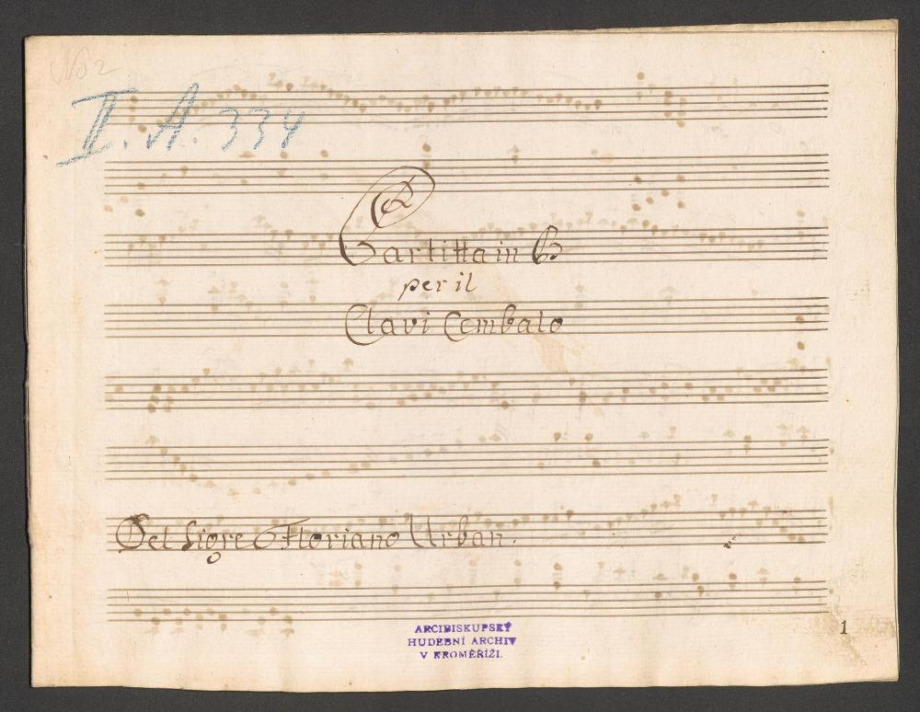 No 2
II. A. 334
Partitta in
per il
Clavi Cembalo
Del Sigre Floriano Urban.
ARCIBISKUPSKÝ
HUDEBNÍ ARCHIV
V KROMĚŘÍŽI.
1